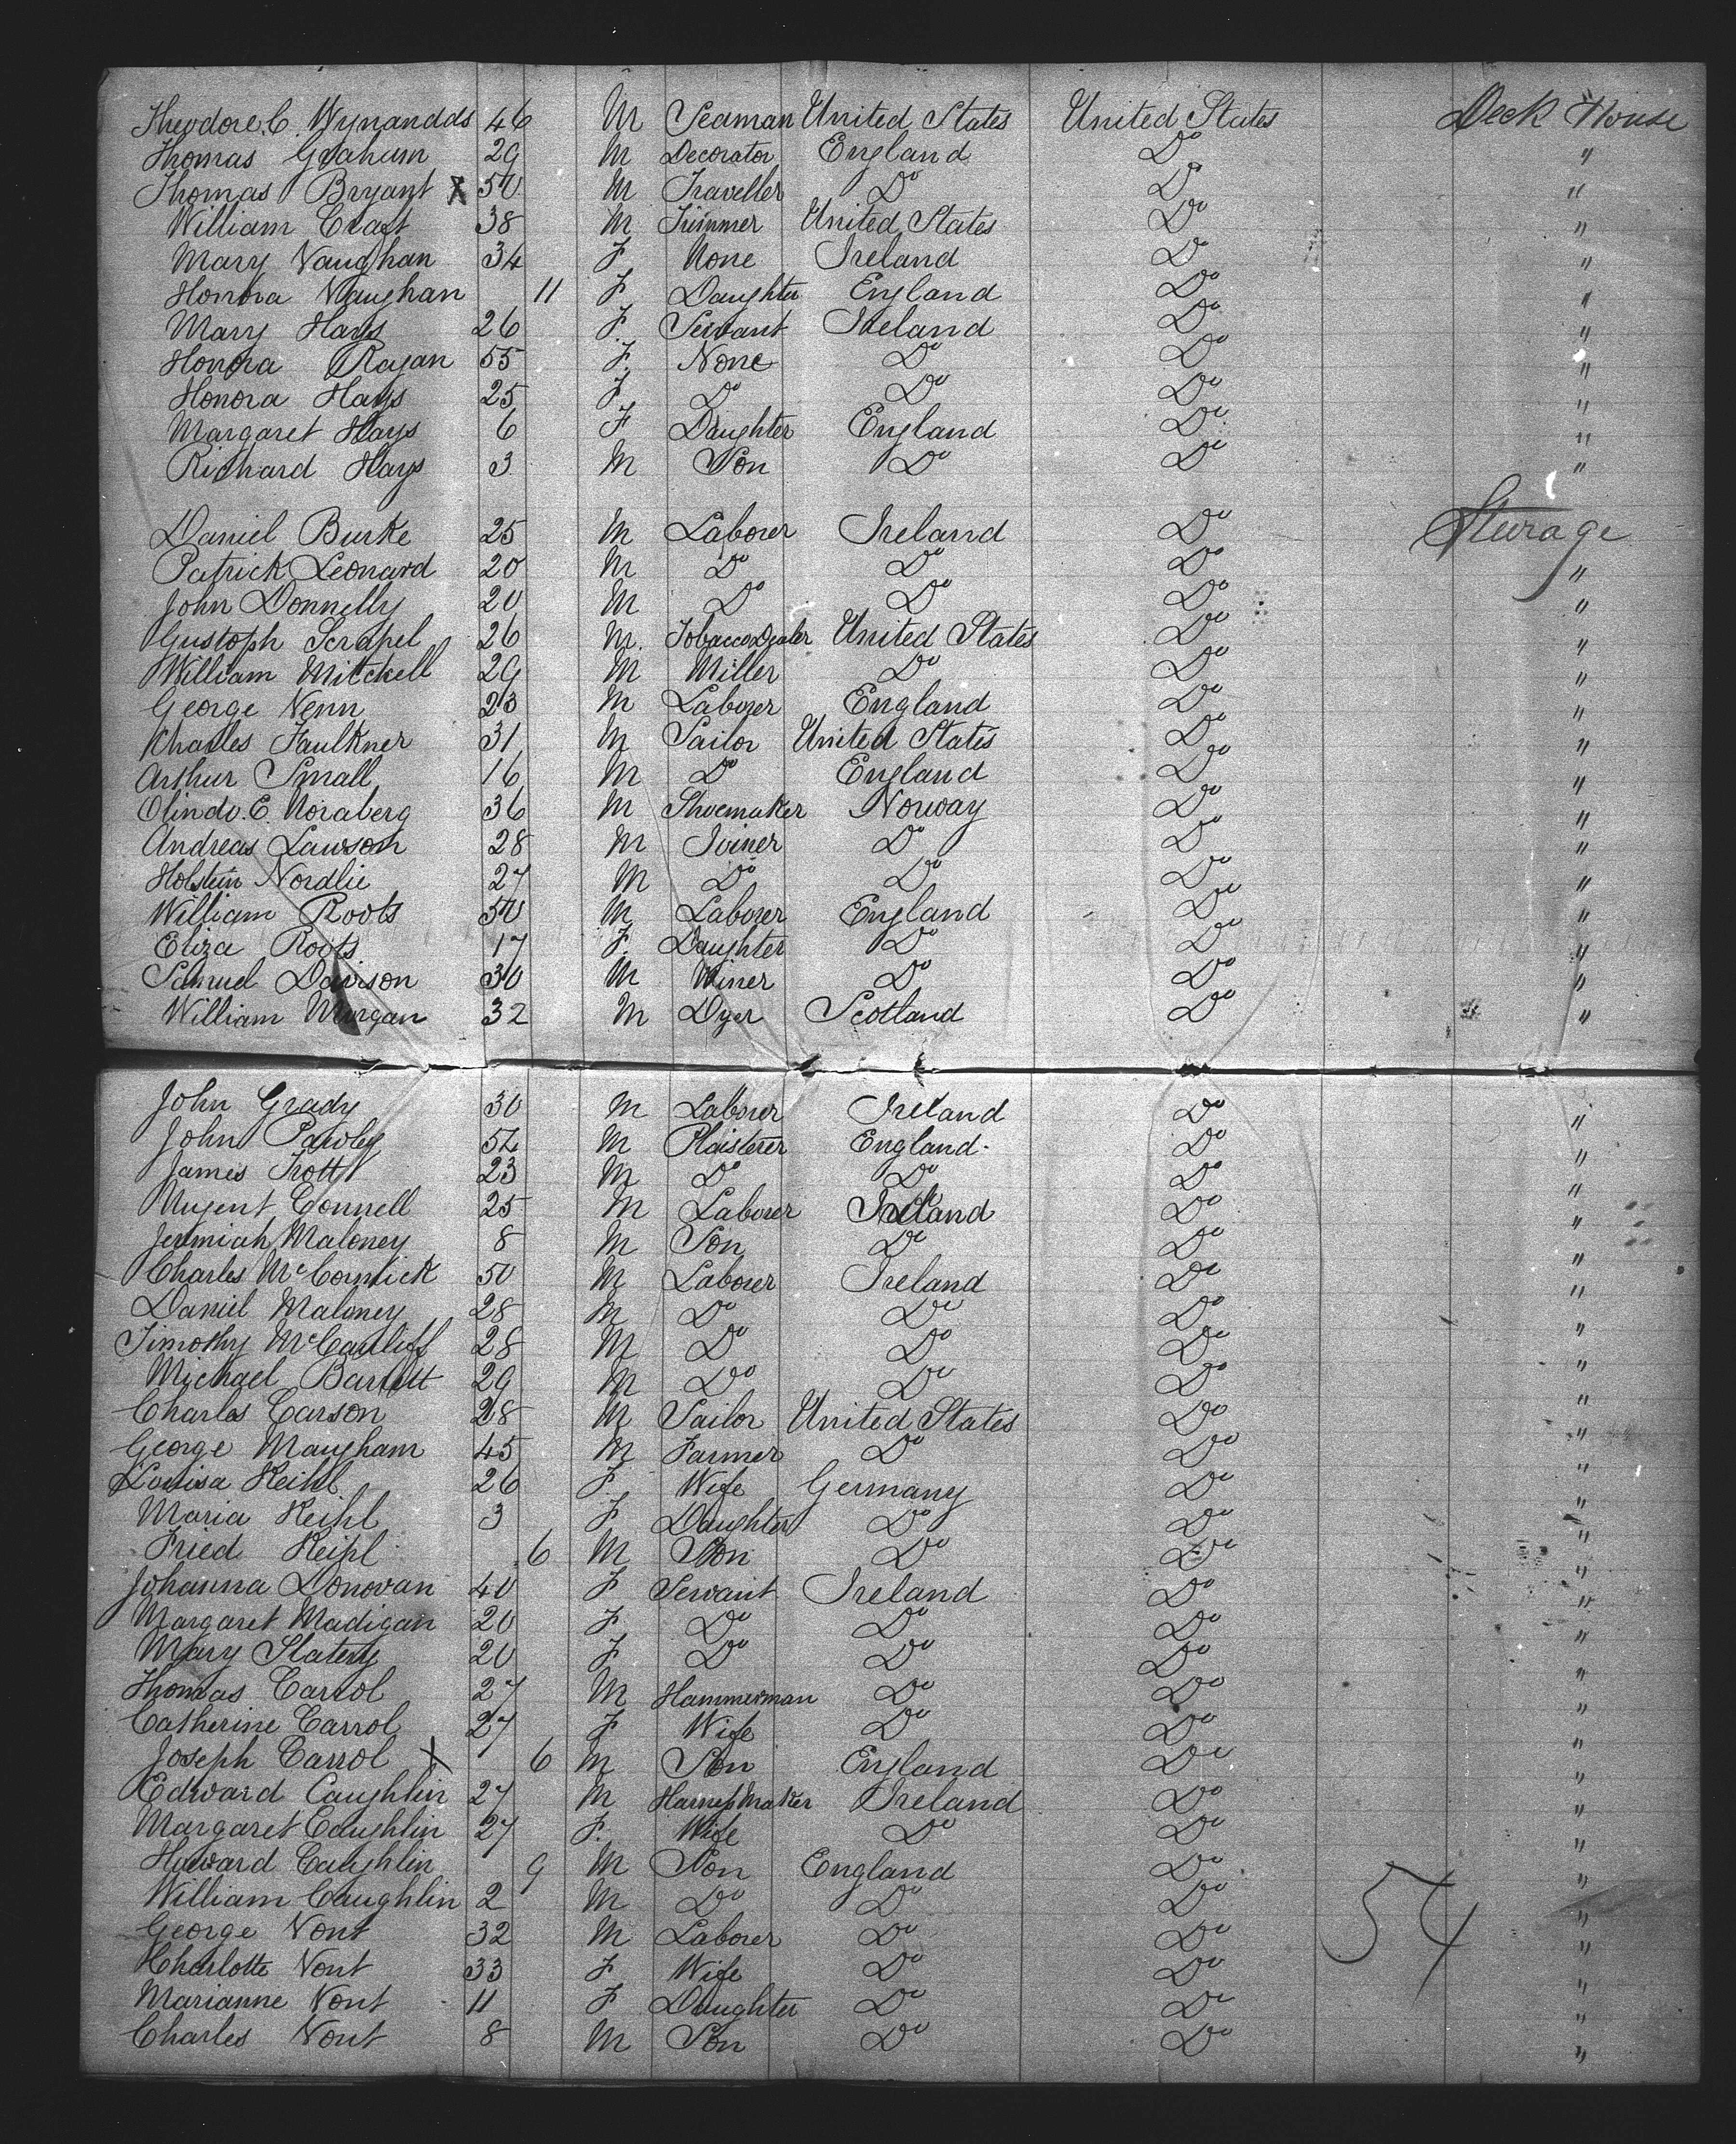 Theodore. C. Wynandds 46 M Seaman United States United States Deck House
Thomas Graham 29 M Decorator England Do "
Thomas Bryant X 50 M Traveller Do Do "
William Craft 38 M Trimmer United States Do "
Mary Vaughan 34 F None Ireland Do "
Honora Vaughan 11 F Daughter England Do "
Mary Hays 26 F. Servant Ireland Do "
Honora Ragan 55 F. None Do Do "
Honora Hays 25 F Do Do Do "
Margaret Hays 6 F Daughter England Do "
Richard Hays 3 M Son Do Do "
Daniel Burke 25 M Laborer Ireland Do Sturage
Patrick Leonard 20 M Do Do Do "
John Donnelly 20 M Do Do Do "
Gustoph Scrapel 26 M. Tobacco Dealer United States Do "
William Mitchell 29 M Miller Do Do "
George Venn 23 M Laborer England Do "
Charles Faulkner 31 M Sailor United States Do "
Arthur Small 16 M Do England Do "
Olindo. E. Noraberg 36 M Shoemaker Norway Do "
Andreas Lawson 28 M Joiner Do Do "
Holstein Nordlie 27 M Do Do Do "
William Roots 50 M Laborer England Do "
Eliza Roots 17 F. Daughter Do Do "
Samuel Davison 30 M Miner Do Do "
William Morgan 32 M Dyer Scotland Do "
John Grady 30 M Laborer Ireland Do "
John Pawley 52 M Plaisterer England Do "
James Trott 23 M Do Do Do "
Nugent Connell 25 M Laborer Ireland Do "
Jermiah Maloney 8 M Son Do Do "
Charles McCormick 50 M Laborer Ireland Do "
Daniel Maloney 28 M Do Do Do "
Timothy McCauliff 28 M Do Do Do "
Michael Barrett 29 M Do Do Do "
Charles Carson 28 M Sailor United States Do "
George Maugham 45 M Farmer Do Do "
Louisa Keihl 26 F. Wife Germany Do "
Maria Keihl 3 F Daughter Do Do "
Fried Keihl 6 M Son Do Do "
Johanna Donovan 40 F Servant Ireland Do "
Margaret Madigan 20 F Do Do Do "
Mary Slatery 20 F Do Do Do "
Thomas Carrol 27 M Hammerman Do Do "
Catherine Carrol 27 F Wife Do Do "
Joseph Carrol X 6 M Son England Do "
Edward Caughlin 27 M Harness Maker Ireland Do "
Margaret Caughlin 27 F. Wife Do Do "
Howard Caughlin 9 M Son England Do "
William Caughlin 2 M Do Do Do "
George Vont 32 M Laborer Do Do "
Charlotte Vont 33 F Wife Do Do "
Marianne Vont 11 F Daughter Do Do "
Charles Vont 8 M Son Do Do "
54